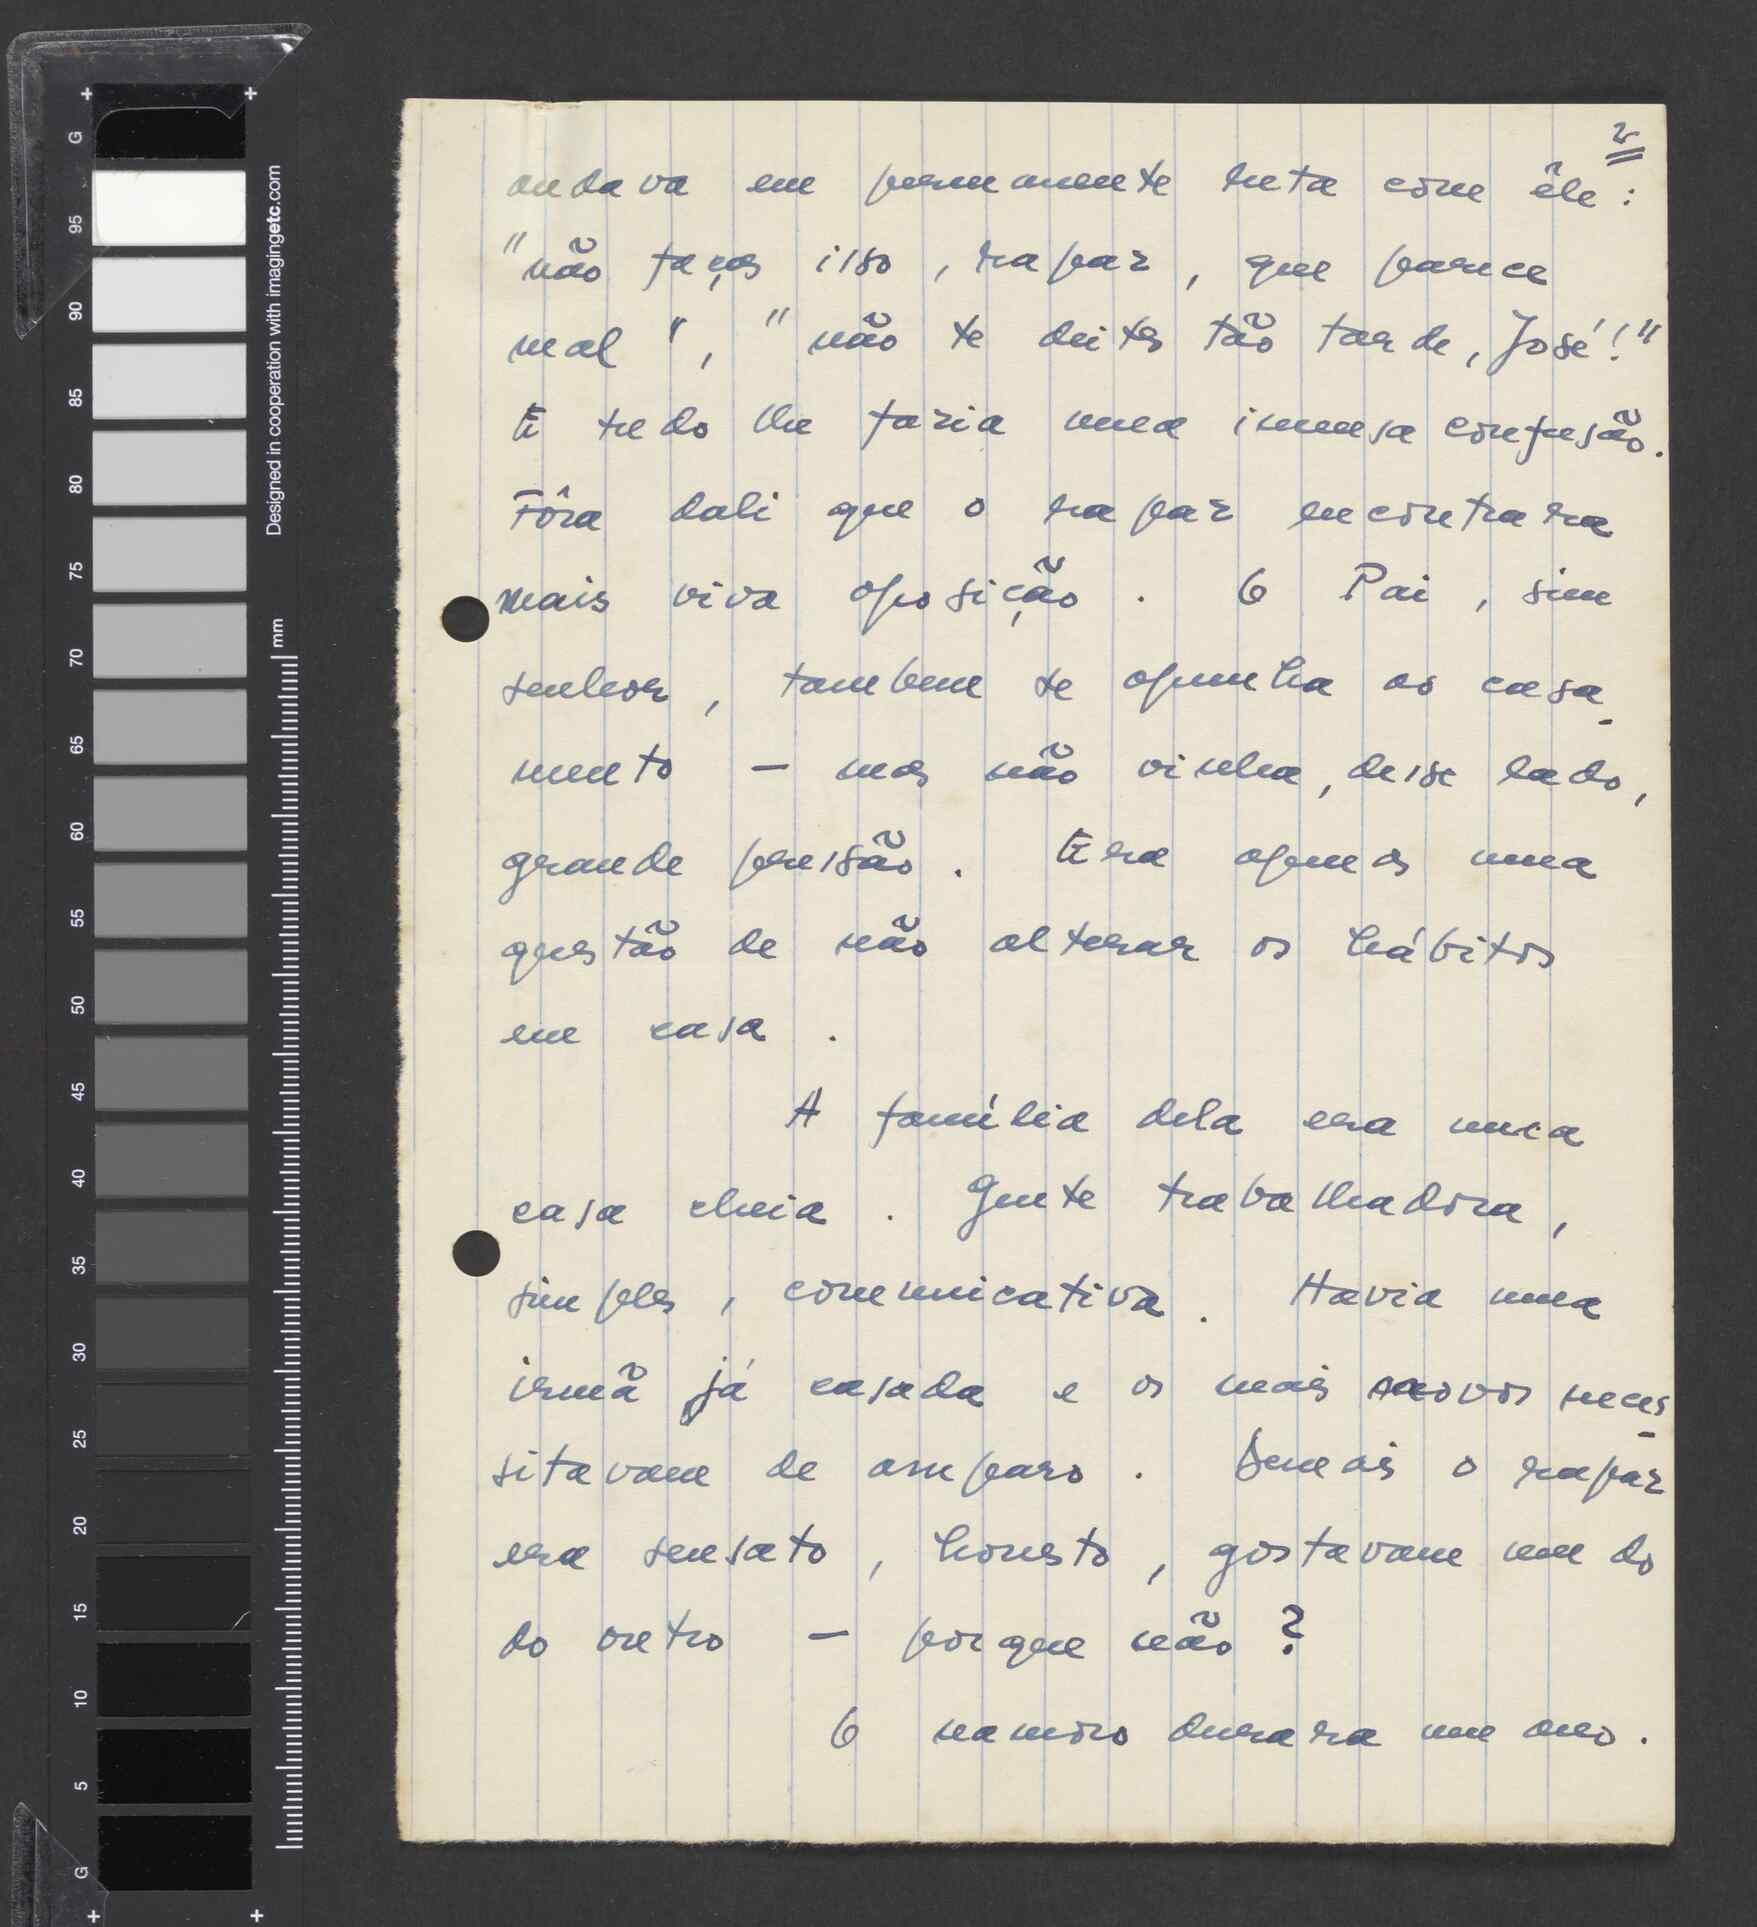 2
andava em permanente luta com êle:
"não faças isso, rapaz, que parece
mal", "não te deites tão tarde, José!"
E tudo lhe fazia uma imensa confusão.
Fôra dali que o rapaz encontrara
mais viva oposição. O Pai, sim
senhor, tambem se opunha ao casa-
mento — mas não vinha, desse lado,
grande pressão. Era apenas uma
questão de não alterar os hábitos
em casa.
A família dela era uma
casa cheia. Gente trabalhadora,
simples, comunicativa. Havia uma
irmã já casada e os mais novos neces-
sitavam de amparo. Demais o rapaz
era sensato, honesto, gostavam um do
do outro — porque não?
O namoro durara um ano.
G
95
90
85
80
75
70
65
60
55
50
45
40
35
30
25
20
15
10
5
G
Designed in cooperation with imagingetc.com
mm